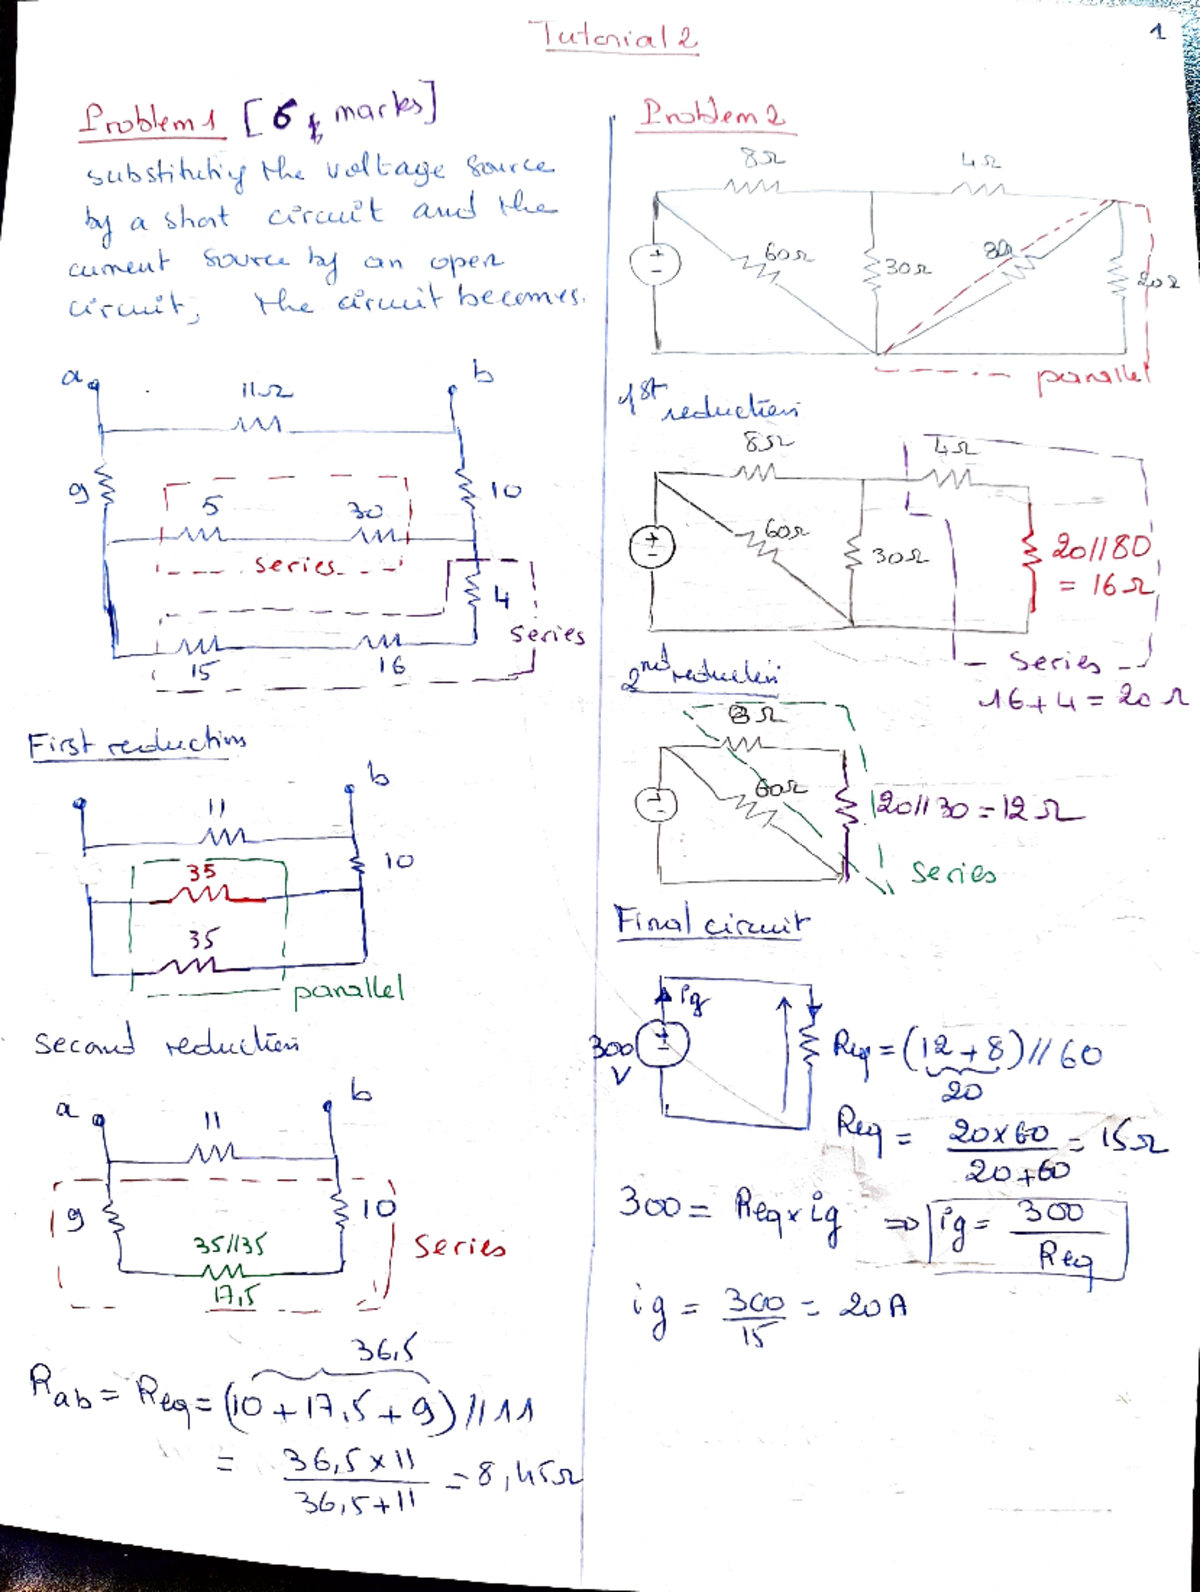 Tutorial 2
1
Problem 1 [6 marks]
substituting the voltage source
by a short circuit and the
current source by an open
circuit, the circuit becomes.
a
b
11Ω
9
10
5
30
series
4
series
15
16
First reduction
b
11
10
35
35
parallel
Second reduction
a
b
11
9
10
35//35
17,5
series
36,5
Rab = Req = (10+17,5+9)//11
= 36,5 x 11 / 36,5+11 = 8,45Ω
Problem 2
8Ω
4Ω
60Ω
30Ω
20Ω
parallel
1st reduction
8Ω
4Ω
60Ω
30Ω
20//80
= 16Ω
series
16+4 = 20Ω
2nd reduction
8Ω
60Ω
20//30 = 12Ω
series
Final circuit
ig
300
V
Req = (12+8)//60
20
Req = 20x60 / 20+60 = 15Ω
300 = Req x ig ⇒ ig = 300 / Req
ig = 300 / 15 = 20A